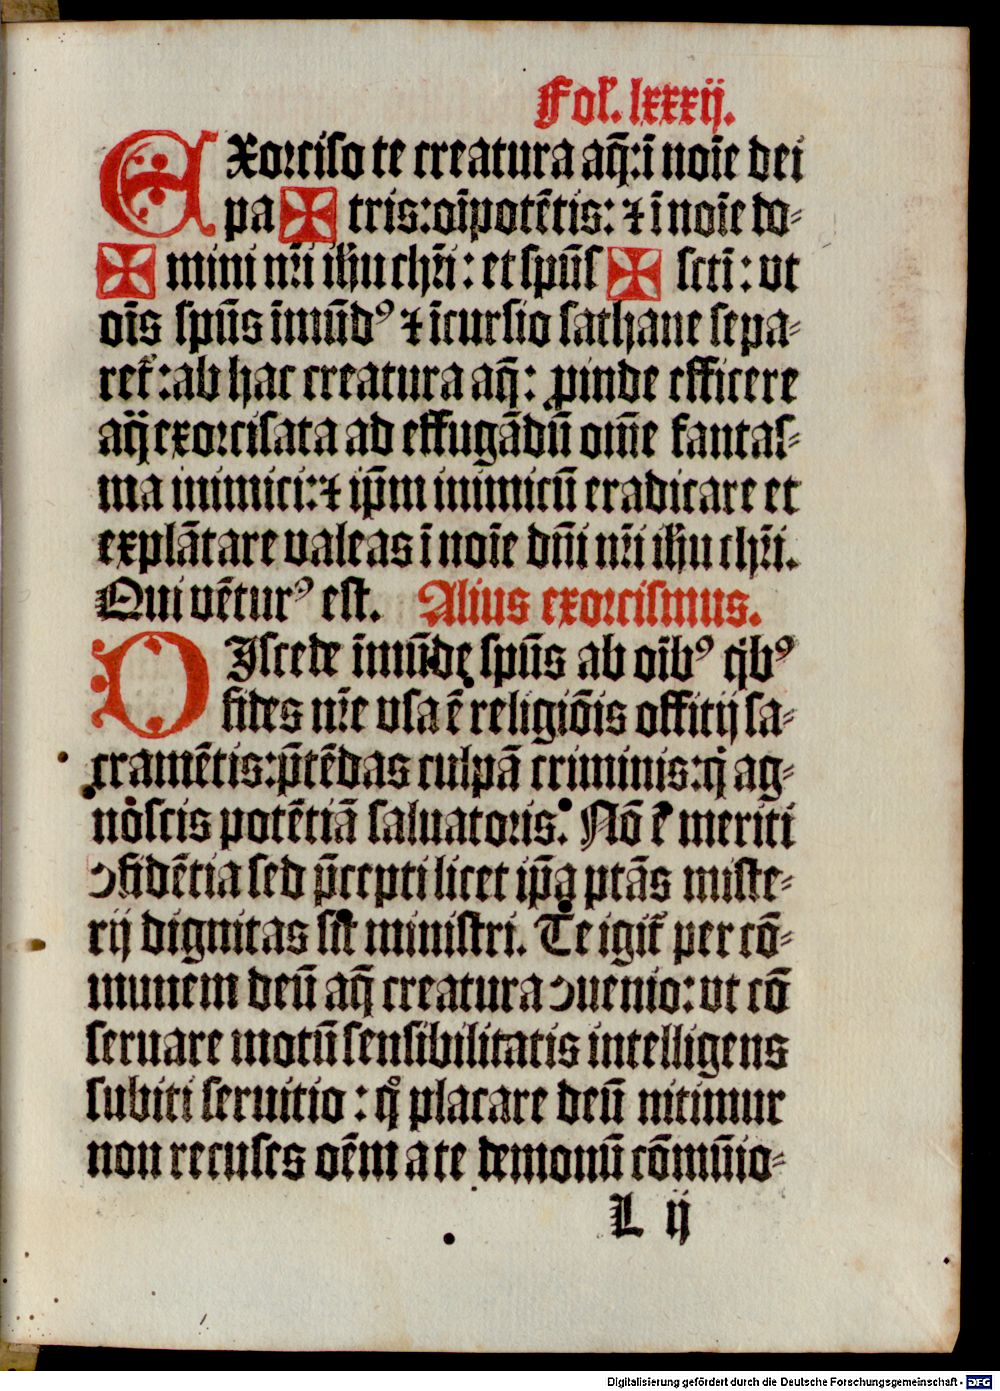 Fol. lxxxij.
EXorciso te creatura aq̄:ī noīe dei
pa ✠ tris:oīpotētis: ⁊ ī noīe do⸗
✠ mini nr̄i ih̄u chr̄i: et spūs ✠ scti: vt
oīs spūs īmūdꝰ ⁊ īcursio sathane sepa⸗
ret᷑:ab hac creatura aq̄: ꝓinde efficere
aq̄ exorcisata ad effugādū om̄e fantas⸗
ma inimici:⁊ ip̄m inimicū eradicare et
explātare valeas ī noīe dn̄i nr̄i ih̄u chr̄i.
Qui vētur⁹ est. Alius exorcismus.
DIscede īmūde spūs ab oībꝰ qͥbꝰ
fides nr̄e vsa ē religiōis offitij sa⸗
cramētis:p̄tēdas culpā criminis:qͥ ag⸗
noscis potētiā saluatoris. Nō ē meriti
ↄfidētia sed p̄cepti licet ip̄a ptās miste⸗
rij dignitas sit ministri. Te igit᷑ per cō⸗
munem deū aq̄ creatura ↄuenio: vt cō
seruare motū sensibilitatis intelligens
subiti seruitio : qͦ placare deū nitimur
non recuses oēm a te demonū cōmūio⸗
L ij
Digitalisierung gefördert durch die Deutsche Forschungsgemeinschaft - DFG